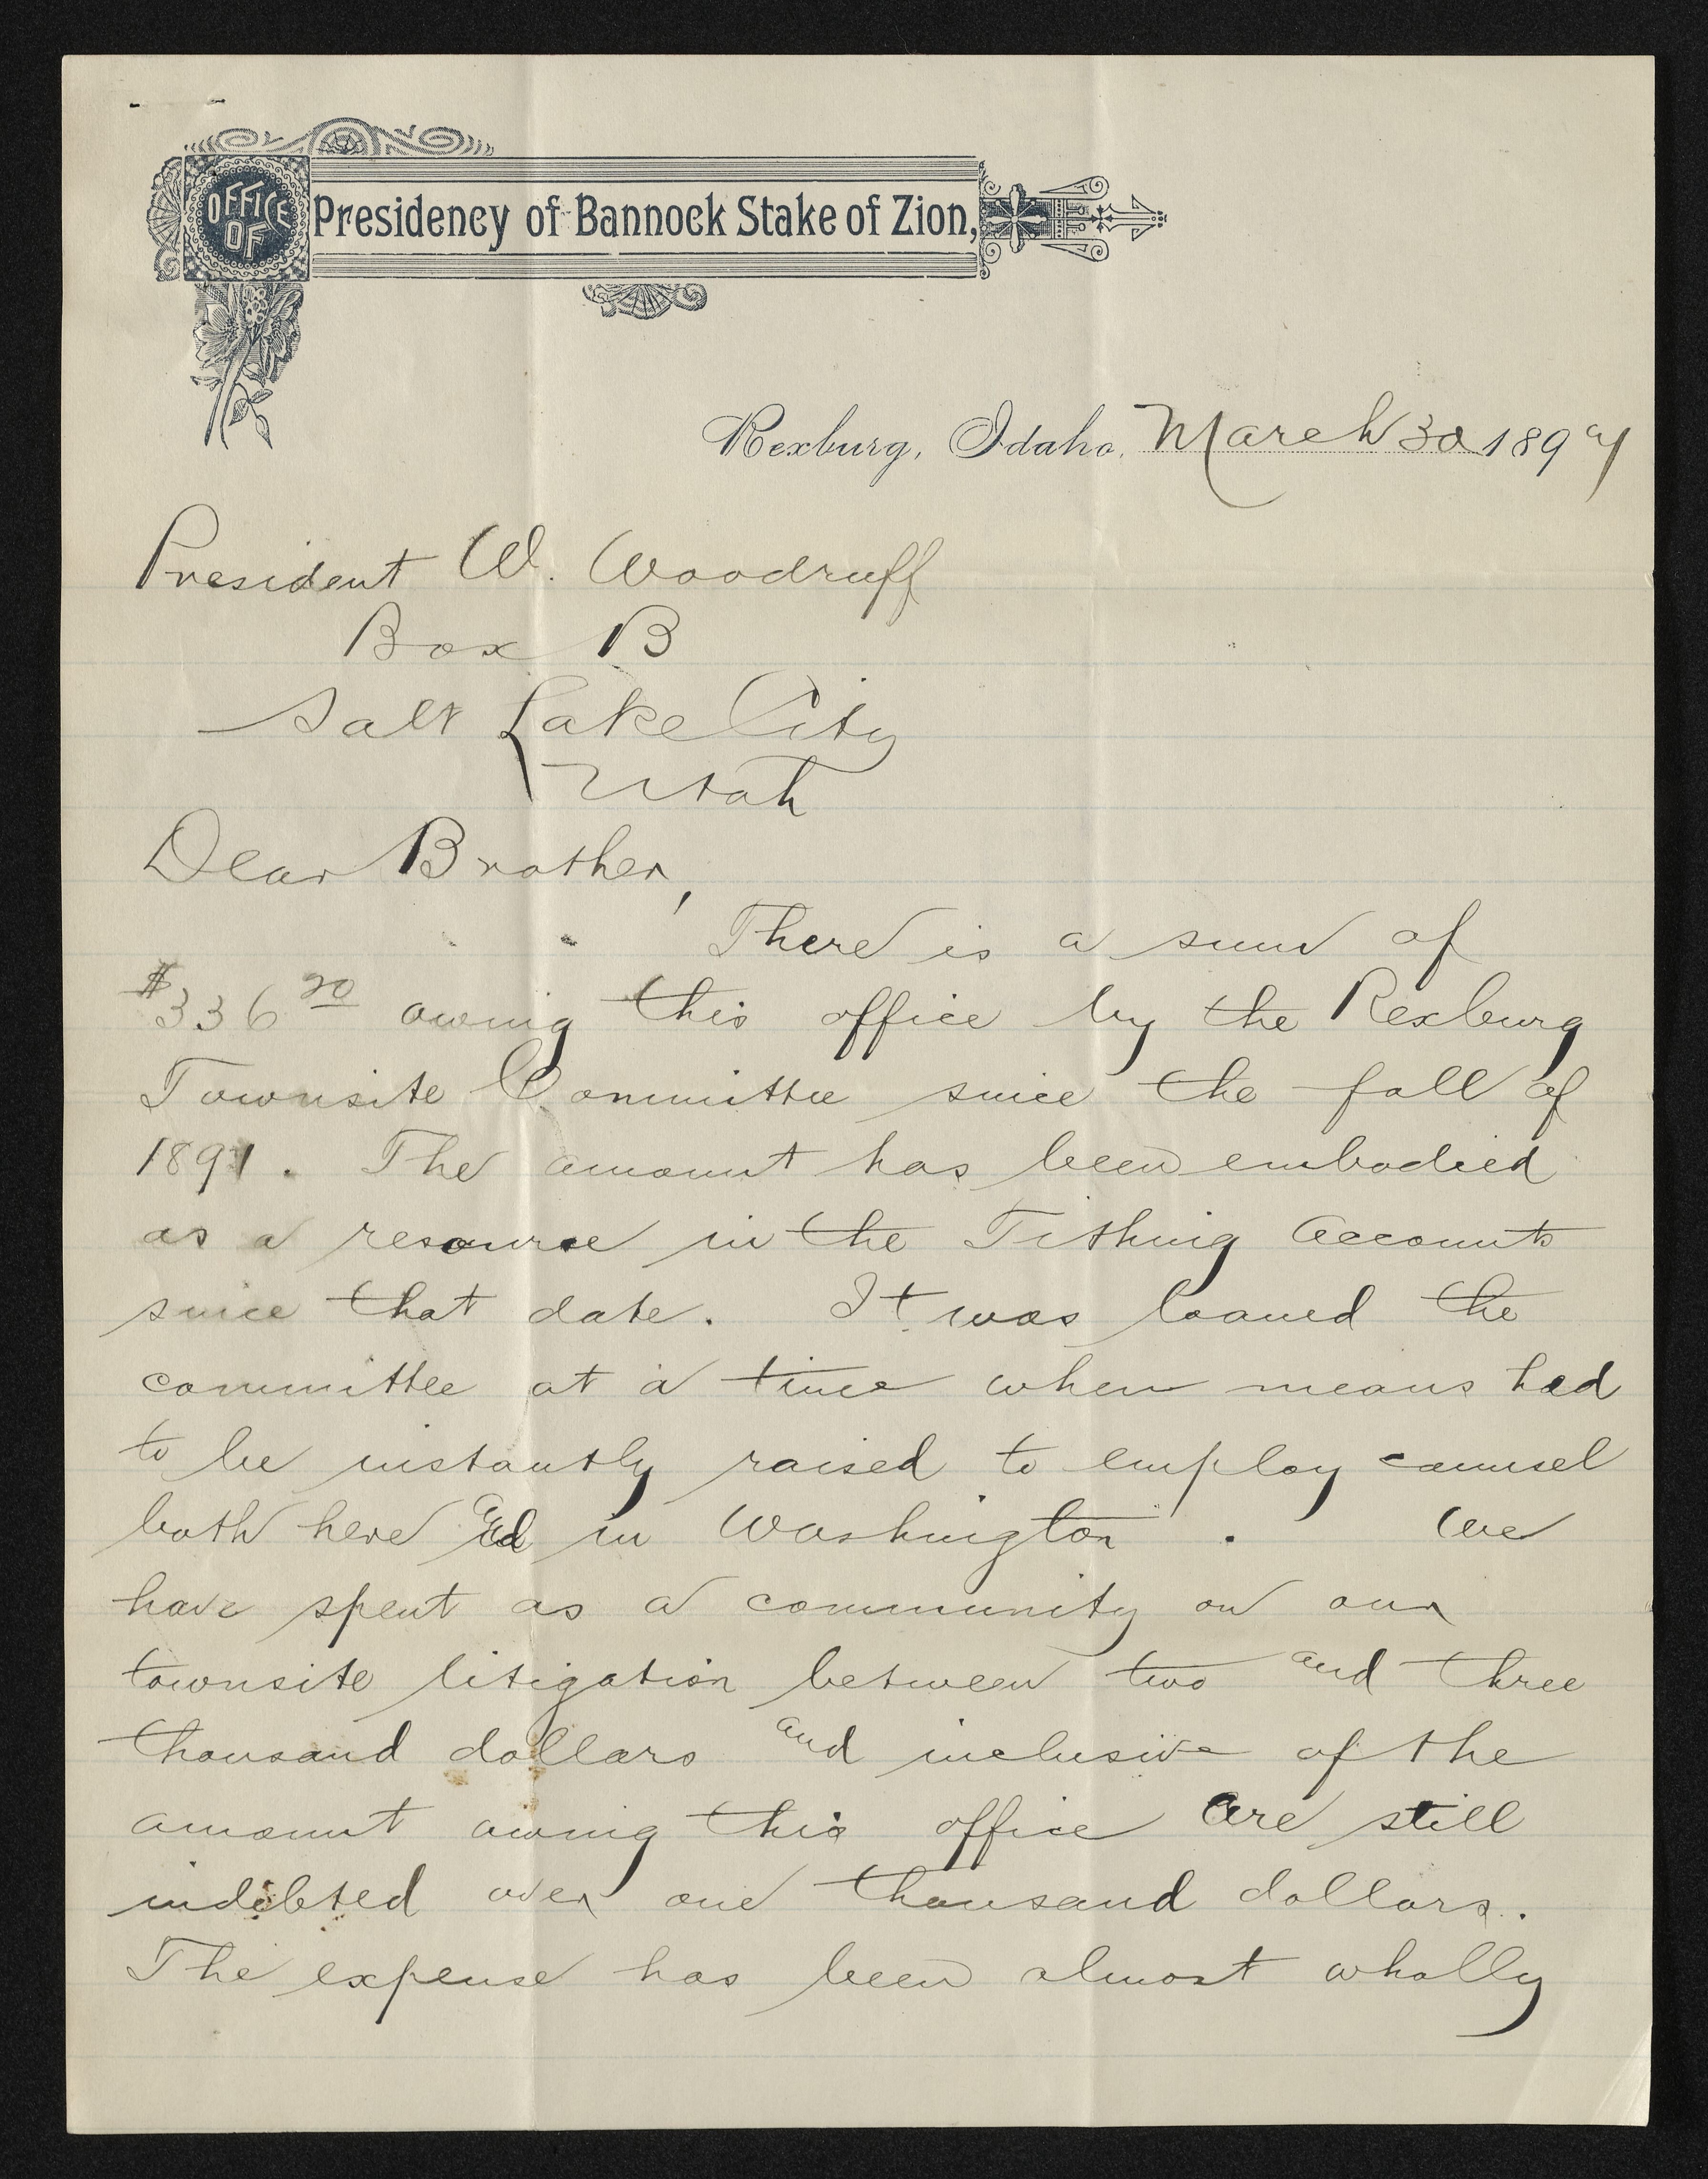 OFFICE OF Presidency of Bannock Stake of Zion,
Rexburg, Idaho, March 30 1894
President W. Woodruff
Box B
Salt Lake City
Utah
Dear Brother,
There is a sum of
$336 20 owing this office by the Rexburg
Townsite Committee since the fall of
1891. The amount has been embodied
as a resource in the Tithing Accounts
since that date. It was loaned the
committee at a time when means had
to be instantly raised to employ counsel
both here and in Washington. We
have spent as a community on our
townsite litigation between two and three
thousand dollars and inclusive of the
amount owing this office are still
indebted over one thousand dollars.
The expense has been almost wholly